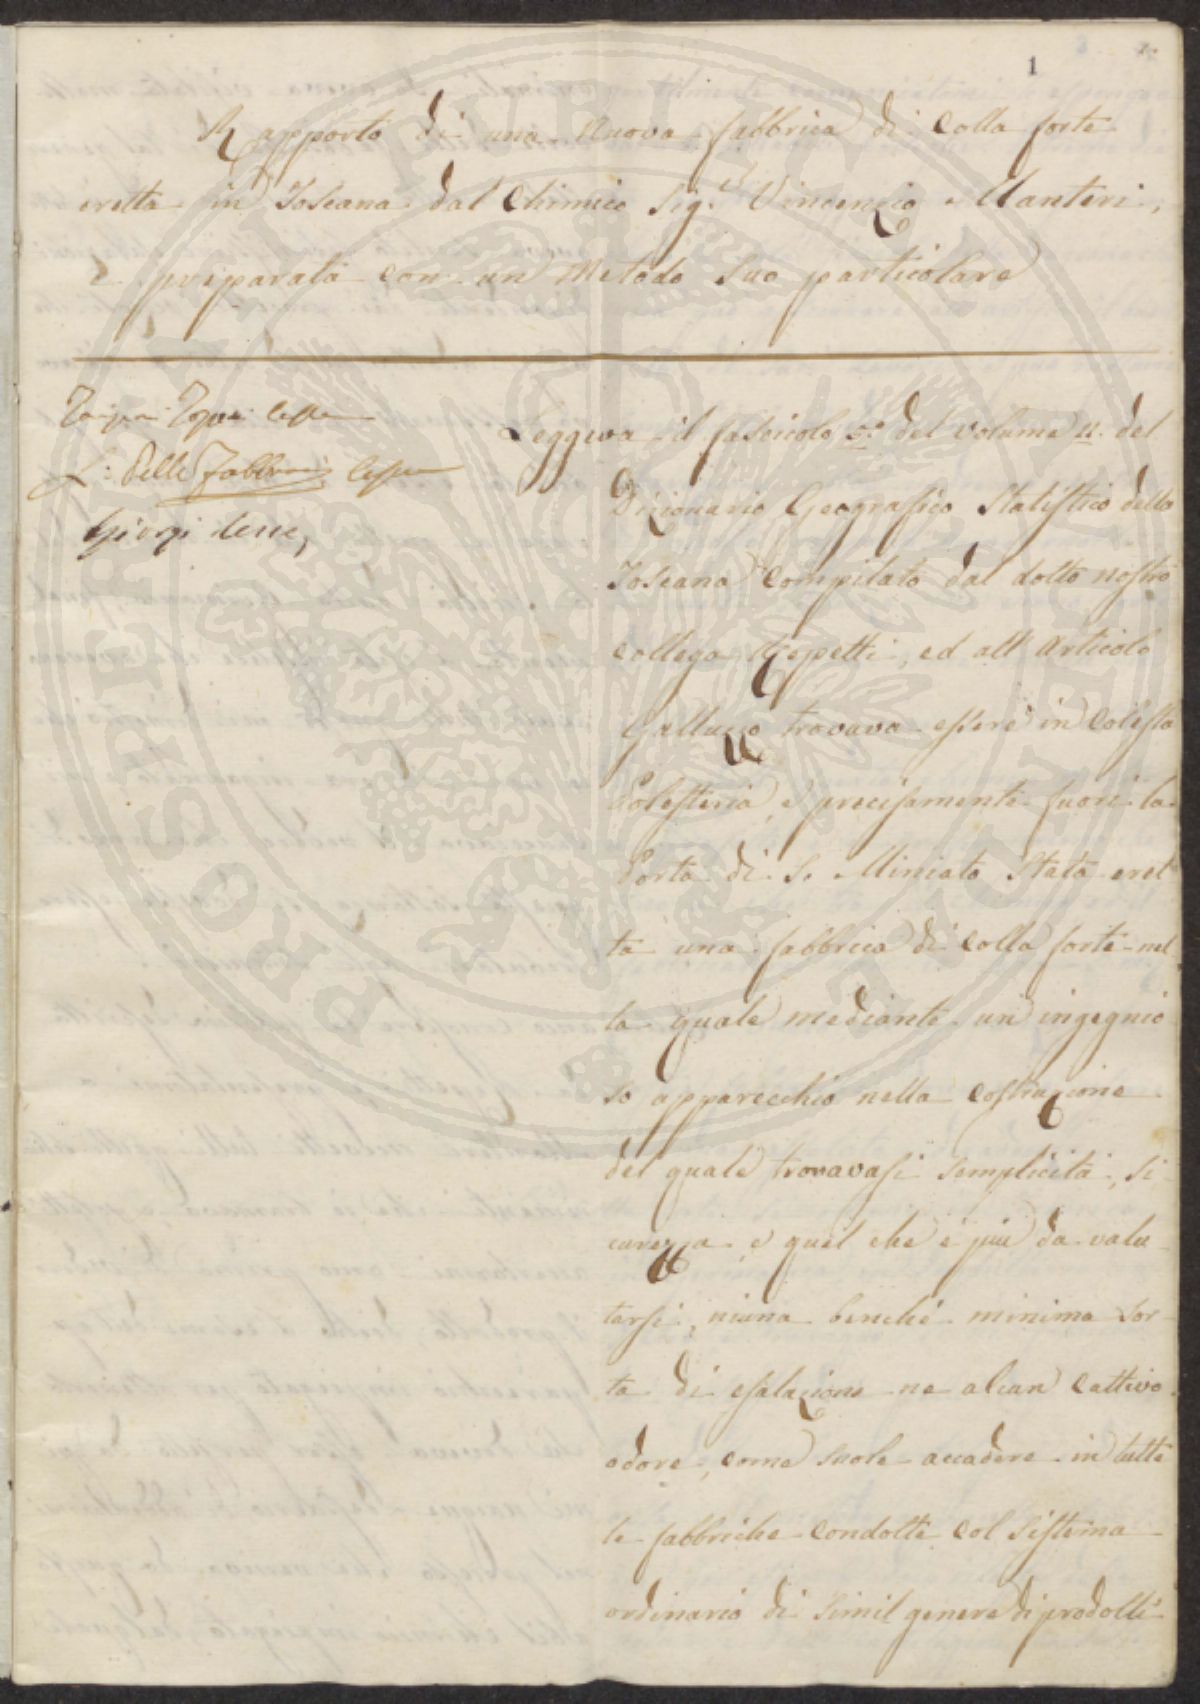 1
Rapporto di una nuova fabbrica di Colla forte
eretta in Toscana dal Chimico Sig.r Vincenzio Manteri,
e preparata con un Metodo suo particolare
L: Delle Fabbriche lesse
Giorgi lesse,
Leggeva il fascicolo 5.o del volume II. del
Dizionario Geografico Statistico della
Toscana compilato dal dotto nostro
collega Repetti, ed all'Articolo
Galluzzo trovava essere in codesta
Potesteria, e precisamente fuori la
Porta di S. Miniato stata eret
ta una fabbrica di colla forte nel
la quale mediante un ingegnio
so apparecchio nella costruzione
del quale trovavasi semplicità, si
curezza e quel che è più da valu
tarsi, niuna benchè minima sor
ta di esalazione ne alcun cattivo
odore, come suole accadere in tutte
le fabbriche condotte col sistema
ordinario di simil genere di prodotti
PROSPERITATI PUBLICAE AUGENDAE